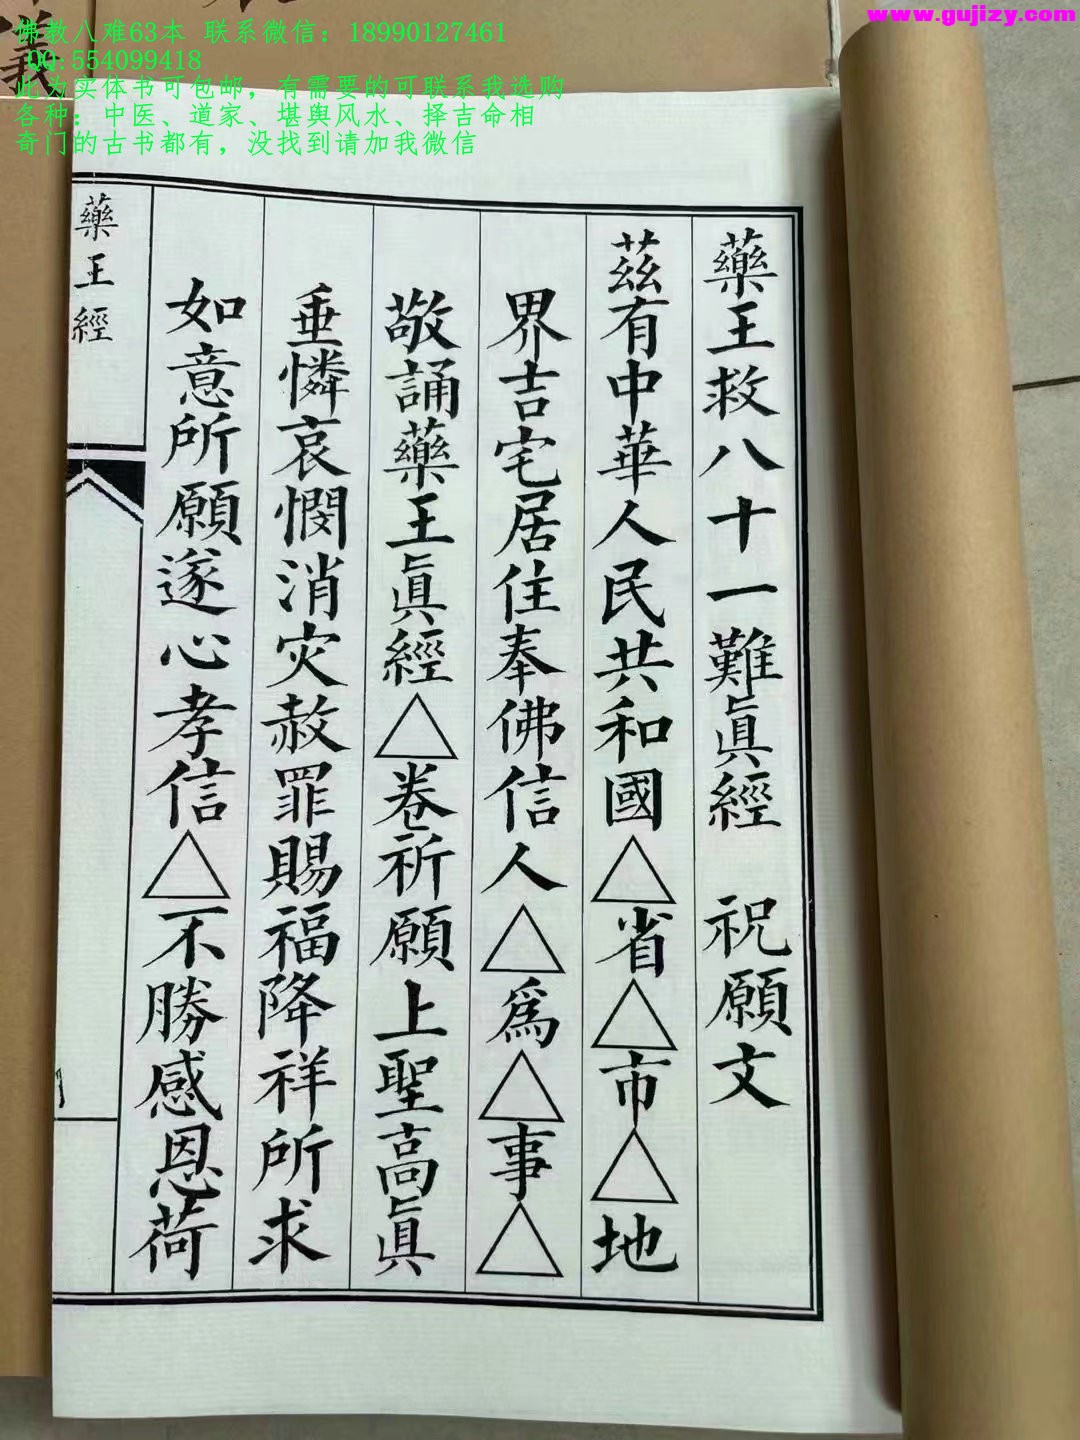 www.gujizy.com
佛教八难63本 联系微信：18990127461
QQ:554099418
此为实体书可包邮，有需要的可联系我选购
各种：中医、道家、堪舆风水、择吉命相
奇门的古书都有，没找到请加我微信
義
藥王救八十一難眞經 祝願文
茲有中華人民共和國△省△市△地
界吉宅居住奉佛信人△爲△事△
敬誦藥王眞經△卷祈願上聖高眞
垂憐哀憫消灾赦罪賜福降祥所求
如意所願遂心孝信△不勝感恩荷
藥王經